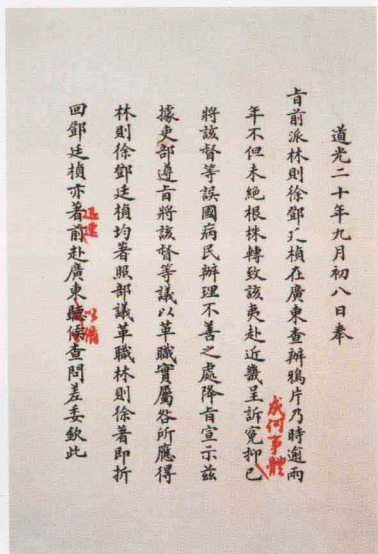 道光二十年九月初八日奉
旨前派林則徐鄧廷楨在廣東查辦鴉片乃時逾兩
成何事體
年不但未絕根株轉致該夷赴近畿呈訴冤抑已
將該督等誤國病民辦理不善之處降旨宣示茲
據吏部遵旨將該督等議以革職實屬咎所應得
林則徐鄧廷楨均著照部議革職林則徐著即折
以備
回鄧廷楨亦著前赴廣東聽候查問差委欽此